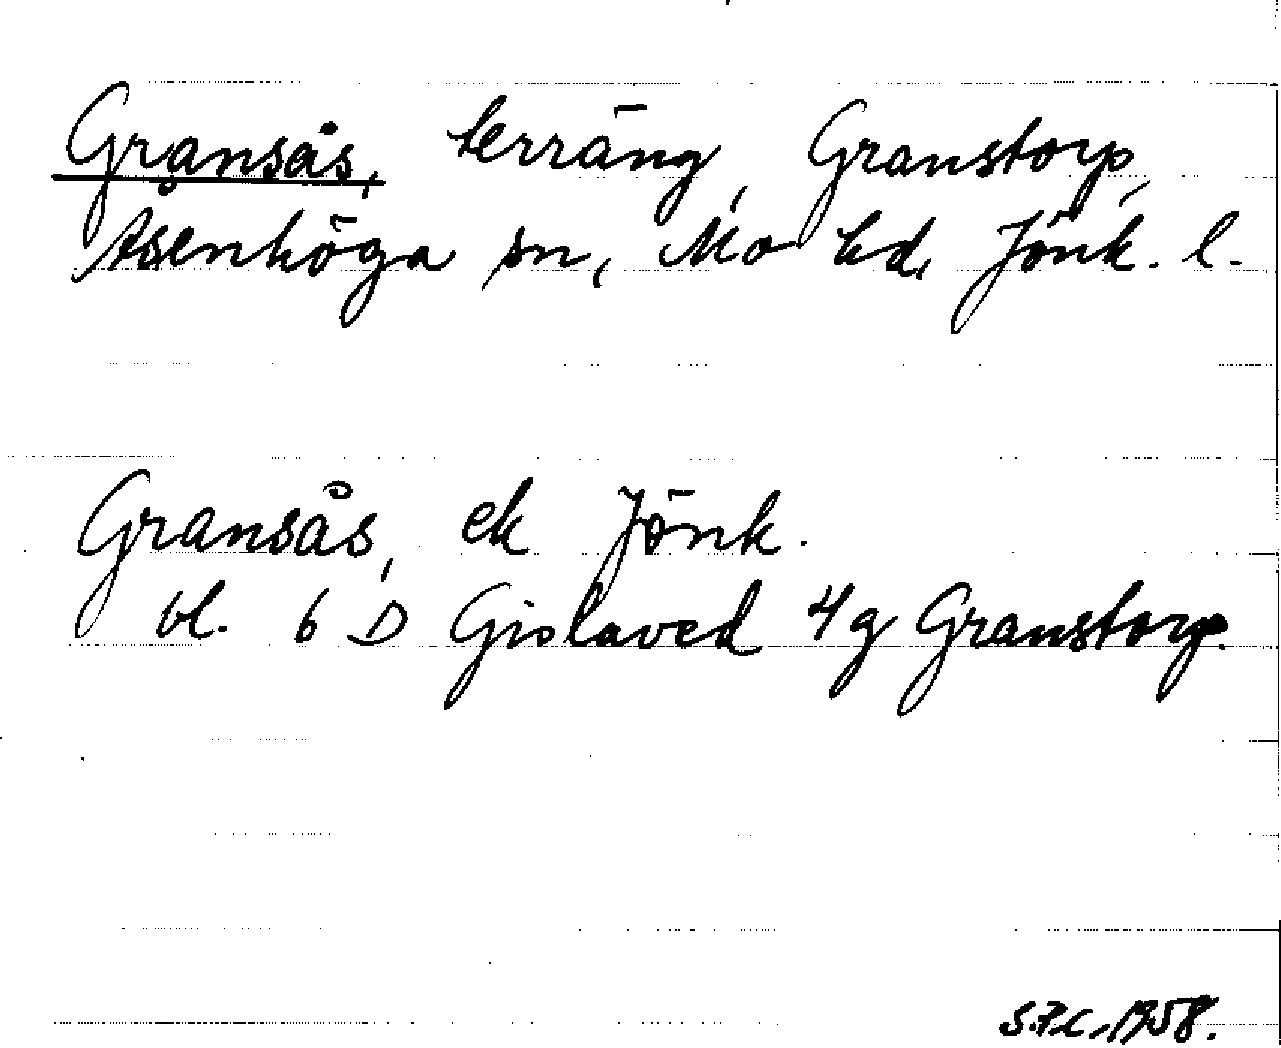 Gransås, terräng, Granstorp,
Åsenhöga sn, Mo hd, Jönk. l.
Gransås, ek Jönk.
bl. 6 D Gislaved 4g Granstorp.
S.P.C. 1958.